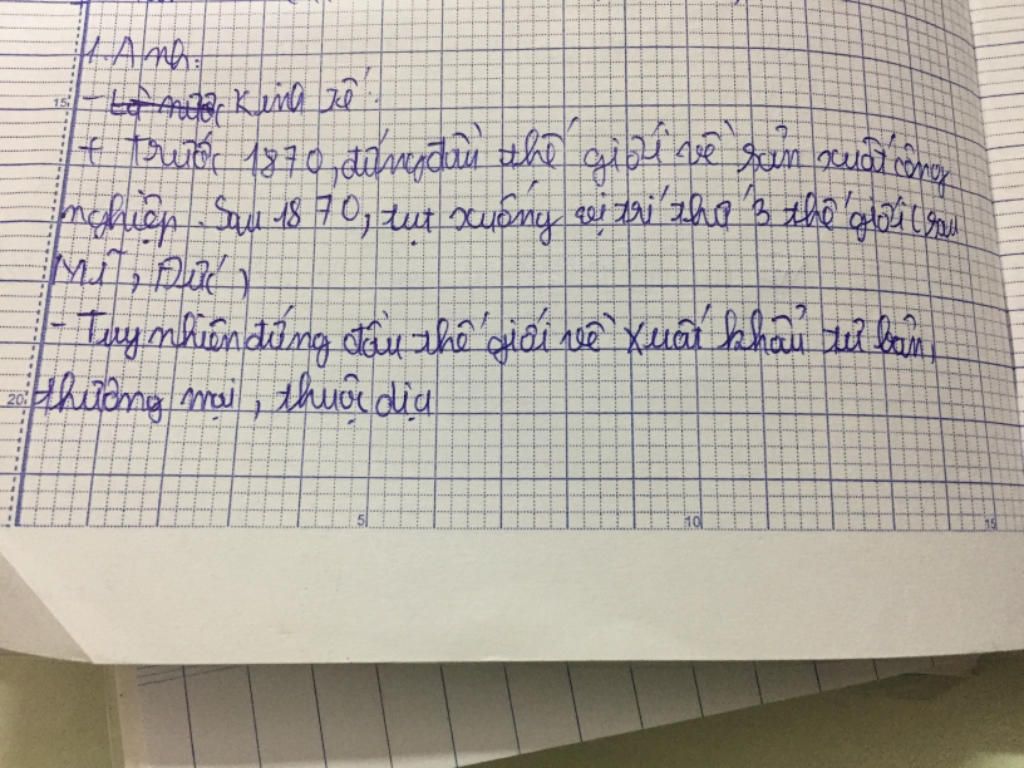 1. Anh:
- Là nước Kinh tế:
+ Trước 1870, đứng đầu thế giới về sản xuất công
nghiệp. Sau 1870, tụt xuống vị trí thứ 3 thế giới (sau
Mĩ, Đức)
- Tuy nhiên đứng đầu thế giới về xuất khẩu tư bản,
thương mại, thuộc địa
15
20
5 10 15